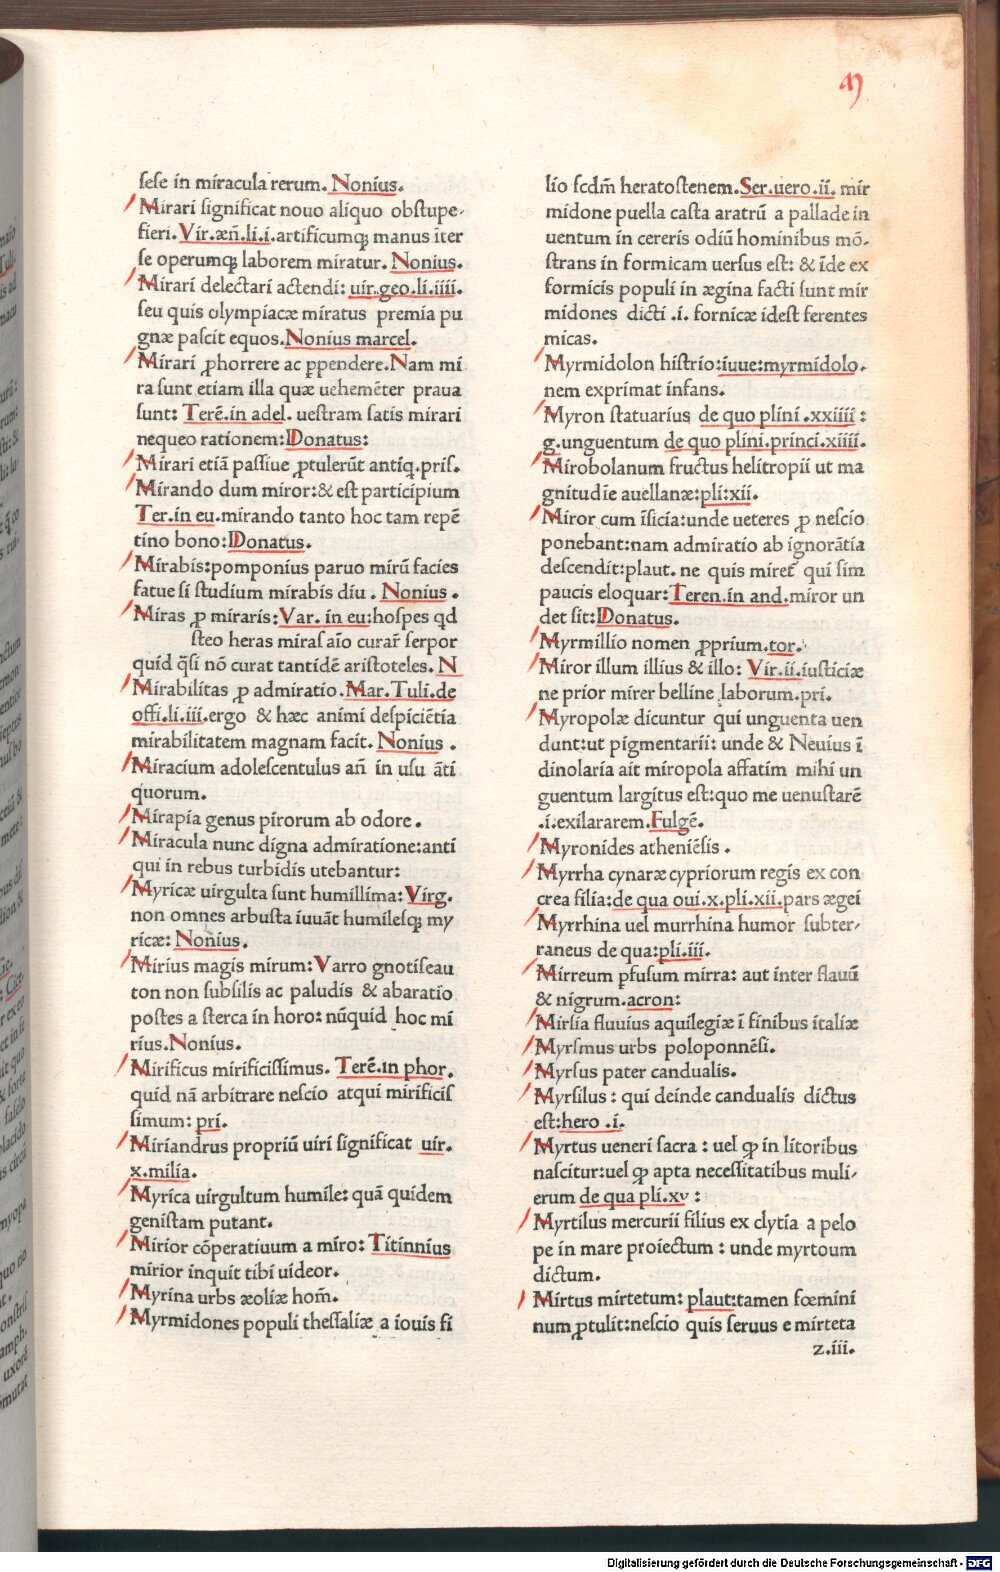 M
sese in miracula rerum. Nonius.
Mirari significat nouo aliquo obstupe-
fieri. Vir. æñ. li. i. artificumq; manus īter
se operumq; laborem miratur. Nonius.
Mirari delectari actendi: uir. geo. li. iiii.
seu quis olympiacæ miratus premia pu
gnæ pascit equos. Nonius marcel.
Mirari ꝓhorrere ac ꝑpendere. Nam mi
ra sunt etiam illa quæ uehemēter praua
sunt: Terē. in adel. uestram satis mirari
nequeo rationem: Donatus:
Mirari etiā passiue ꝓtulerūt antiq. pris.
Mirando dum miror: & est participium
Ter. in eu. mirando tanto hoc tam repē
tino bono: Donatus.
Mirabis: pomponius paruo mirū facies
fatue si studium mirabis diu. Nonius.
Miras ꝓ miraris: Var. in eu: hospes qd
steo heras miras aīo curar̄ serpor
quid q̄si nō curat tantidē aristoteles. N
Mirabilitas ꝓ admiratio. Mar. Tuli. de
offi. li. iii. ergo & hæc animi despiciētia
mirabilitatem magnam facit. Nonius.
Miracium adolescentulus añ in usu āti
quorum.
Mirapia genus pirorum ab odore.
Miracula nunc digna admiratione: anti
qui in rebus turbidis utebantur:
Myricæ uirgulta sunt humillima: Virg.
non omnes arbusta iuuāt humilesq; my
ricæ: Nonius.
Mirius magis mirum: Varro gnotiseau
ton non subsilis ac paludis & abaratio
postes a sterca in horo: nūquid hoc mi
rius. Nonius.
Mirificus mirificissimus. Terē. in phor.
quid nā arbitrare nescio atqui mirificis
simum: pri.
Miriandrus propriū uiri significat uir.
x. milia.
Myrica uirgultum humile: quā quidem
genistam putant.
Mirior cōperatiuum a miro: Titinnius
mirior inquit tibi uideor.
Myrina urbs æoliæ hom̄.
Myrmidones populi thessaliæ a iouis fi
lio scdm̄ heratostenem. Ser. uero. ii. mir
midone puella casta aratrū a pallade in
uentum in cereris odiū hominibus mō-
strans in formicam uersus est: & īde ex
formicis populi in ægina facti sunt mir
midones dicti .i. fornicæ idest ferentes
micas.
Myrmidolon histrio: iuue: myrmidolo.
nem exprimat infans.
Myron statuarius de quo plini. xxiiii:
g. unguentum de quo plini. princi. xiiii.
Mirobolanum fructus helitropii ut ma
gnitudīe auellanæ: pli: xii.
Miror cum īsicia: unde ueteres ꝓ nescio
ponebant: nam admiratio ab ignorātia
descendit: plaut. ne quis miret̄ qui sim
paucis eloquar: Teren. in and. miror un
det sit: Donatus.
Myrmillio nomen ꝓprium. tor.
Miror illum illius & illo: Vir. ii. iusticiæ
ne prior mirer belline laborum. pri.
Myropolæ dicuntur qui unguenta uen
dunt: ut pigmentarii: unde & Neuius ī
dinolaria ait miropola affatim mihi un
guentum largitus est: quo me uenustarē
.i. exilararem. Fulgē.
Myronides atheniēsis.
Myrrha cynaræ cypriorum regis ex con
crea filia: de qua oui. x. pli. xii. pars ægei
Myrrhina uel murrhina humor subter-
raneus de qua: pli. iii.
Mirreum ꝑfusum mirra: aut inter flauū
& nigrum. acron:
Mirsia fluuius aquilegiæ ī finibus italiæ
Myrsmus urbs poloponnēsi.
Myrsus pater candualis.
Myrsilus: qui deinde candualis dictus
est: hero .i.
Myrtus ueneri sacra: uel ꝙ in litoribus
nascitur: uel ꝙ apta necessitatibus muli-
erum de qua pli. xv:
Myrtilus mercurii filius ex clytia a pelo
pe in mare proiectum: unde myrtoum
dictum.
Mirtus mirtetum: plaut: tamen fœmini
num ꝓtulit: nescio quis seruus e mirteta
z. iii.
Digitalisierung gefördert durch die Deutsche Forschungsgemeinschaft - DFG